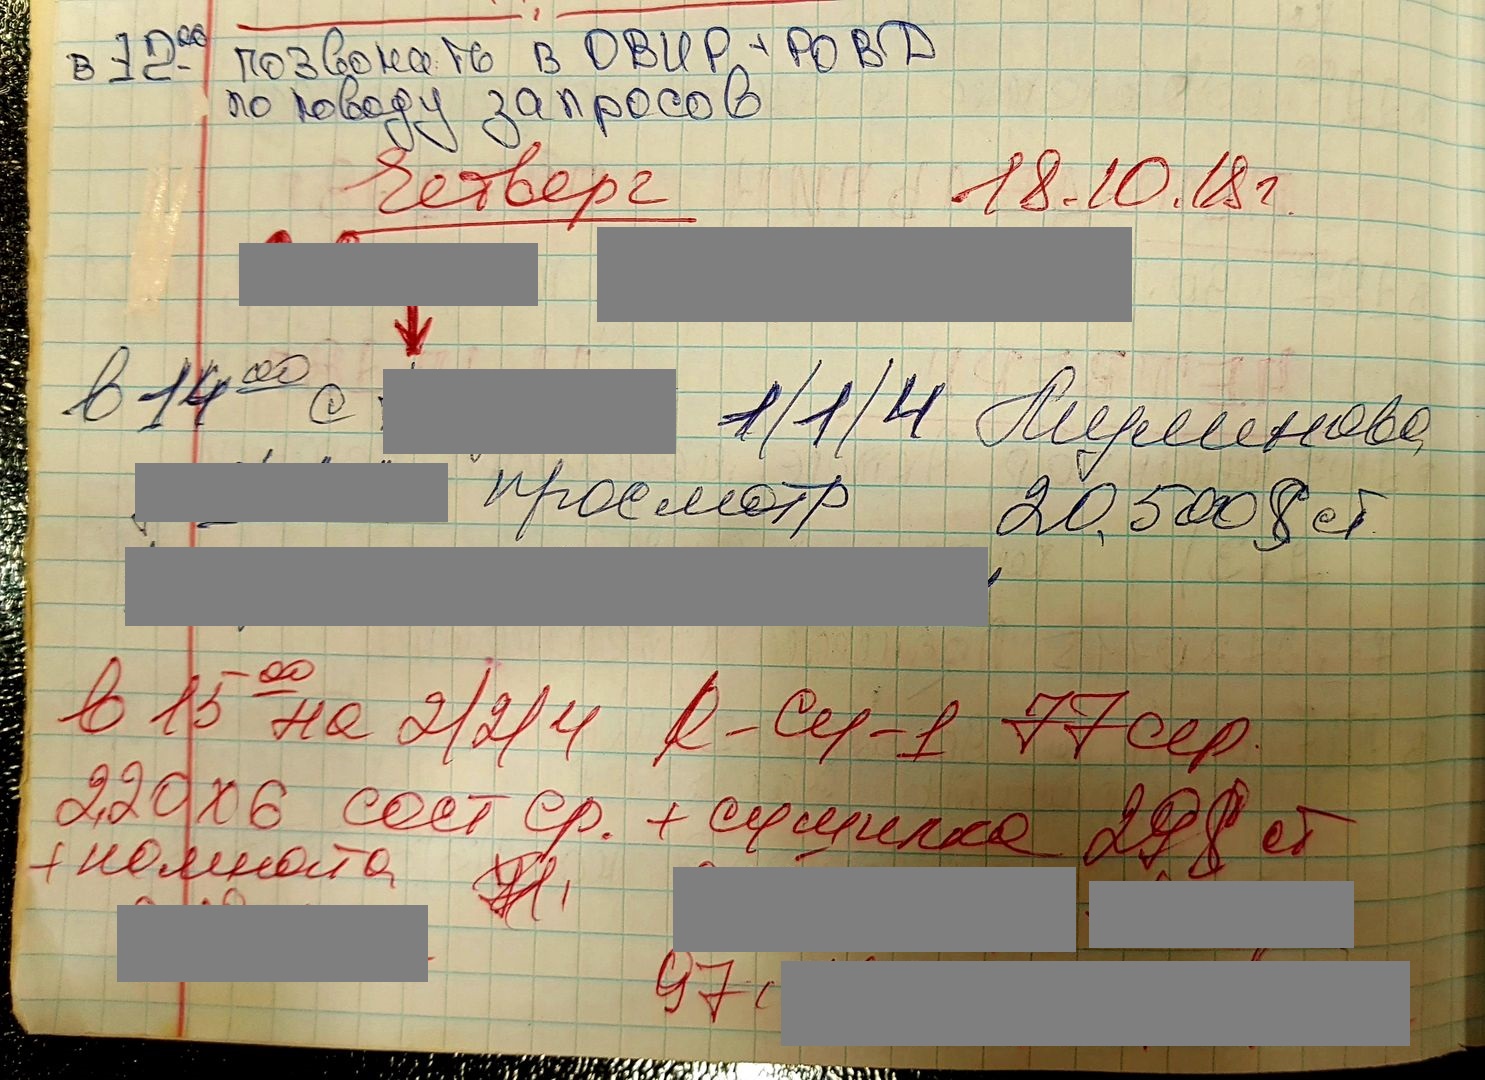 в 12⁰⁰ позвонить в ОВИР + РОВД
по поводу запросов
Четверг 18.10.18г.
в 14⁰⁰ с 1/1/4 Муминова
просмотр 20,500$ ст
в 15⁰⁰ на 2/2/4 77 сер.
2,20х6 сост ср. + сушилка ст
+ комната
97